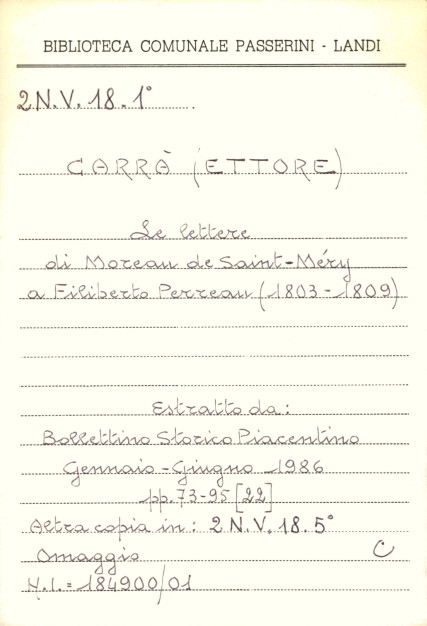 BIBLIOTECA COMUNALE PASSERINI - LANDI
2 N.V. 18. 1°
CARRÀ (ETTORE)
Le lettere
di Moreau de Saint-Méry
a Filiberto Perreau (1803 - 1809)
Estratto da:
Bollettino Storico Piacentino
Gennaio - Giugno 1986
pp. 73-95 [22]
Altra copia in: 2 N.V. 18. 5°
Omaggio C
N.I. = 184900/01